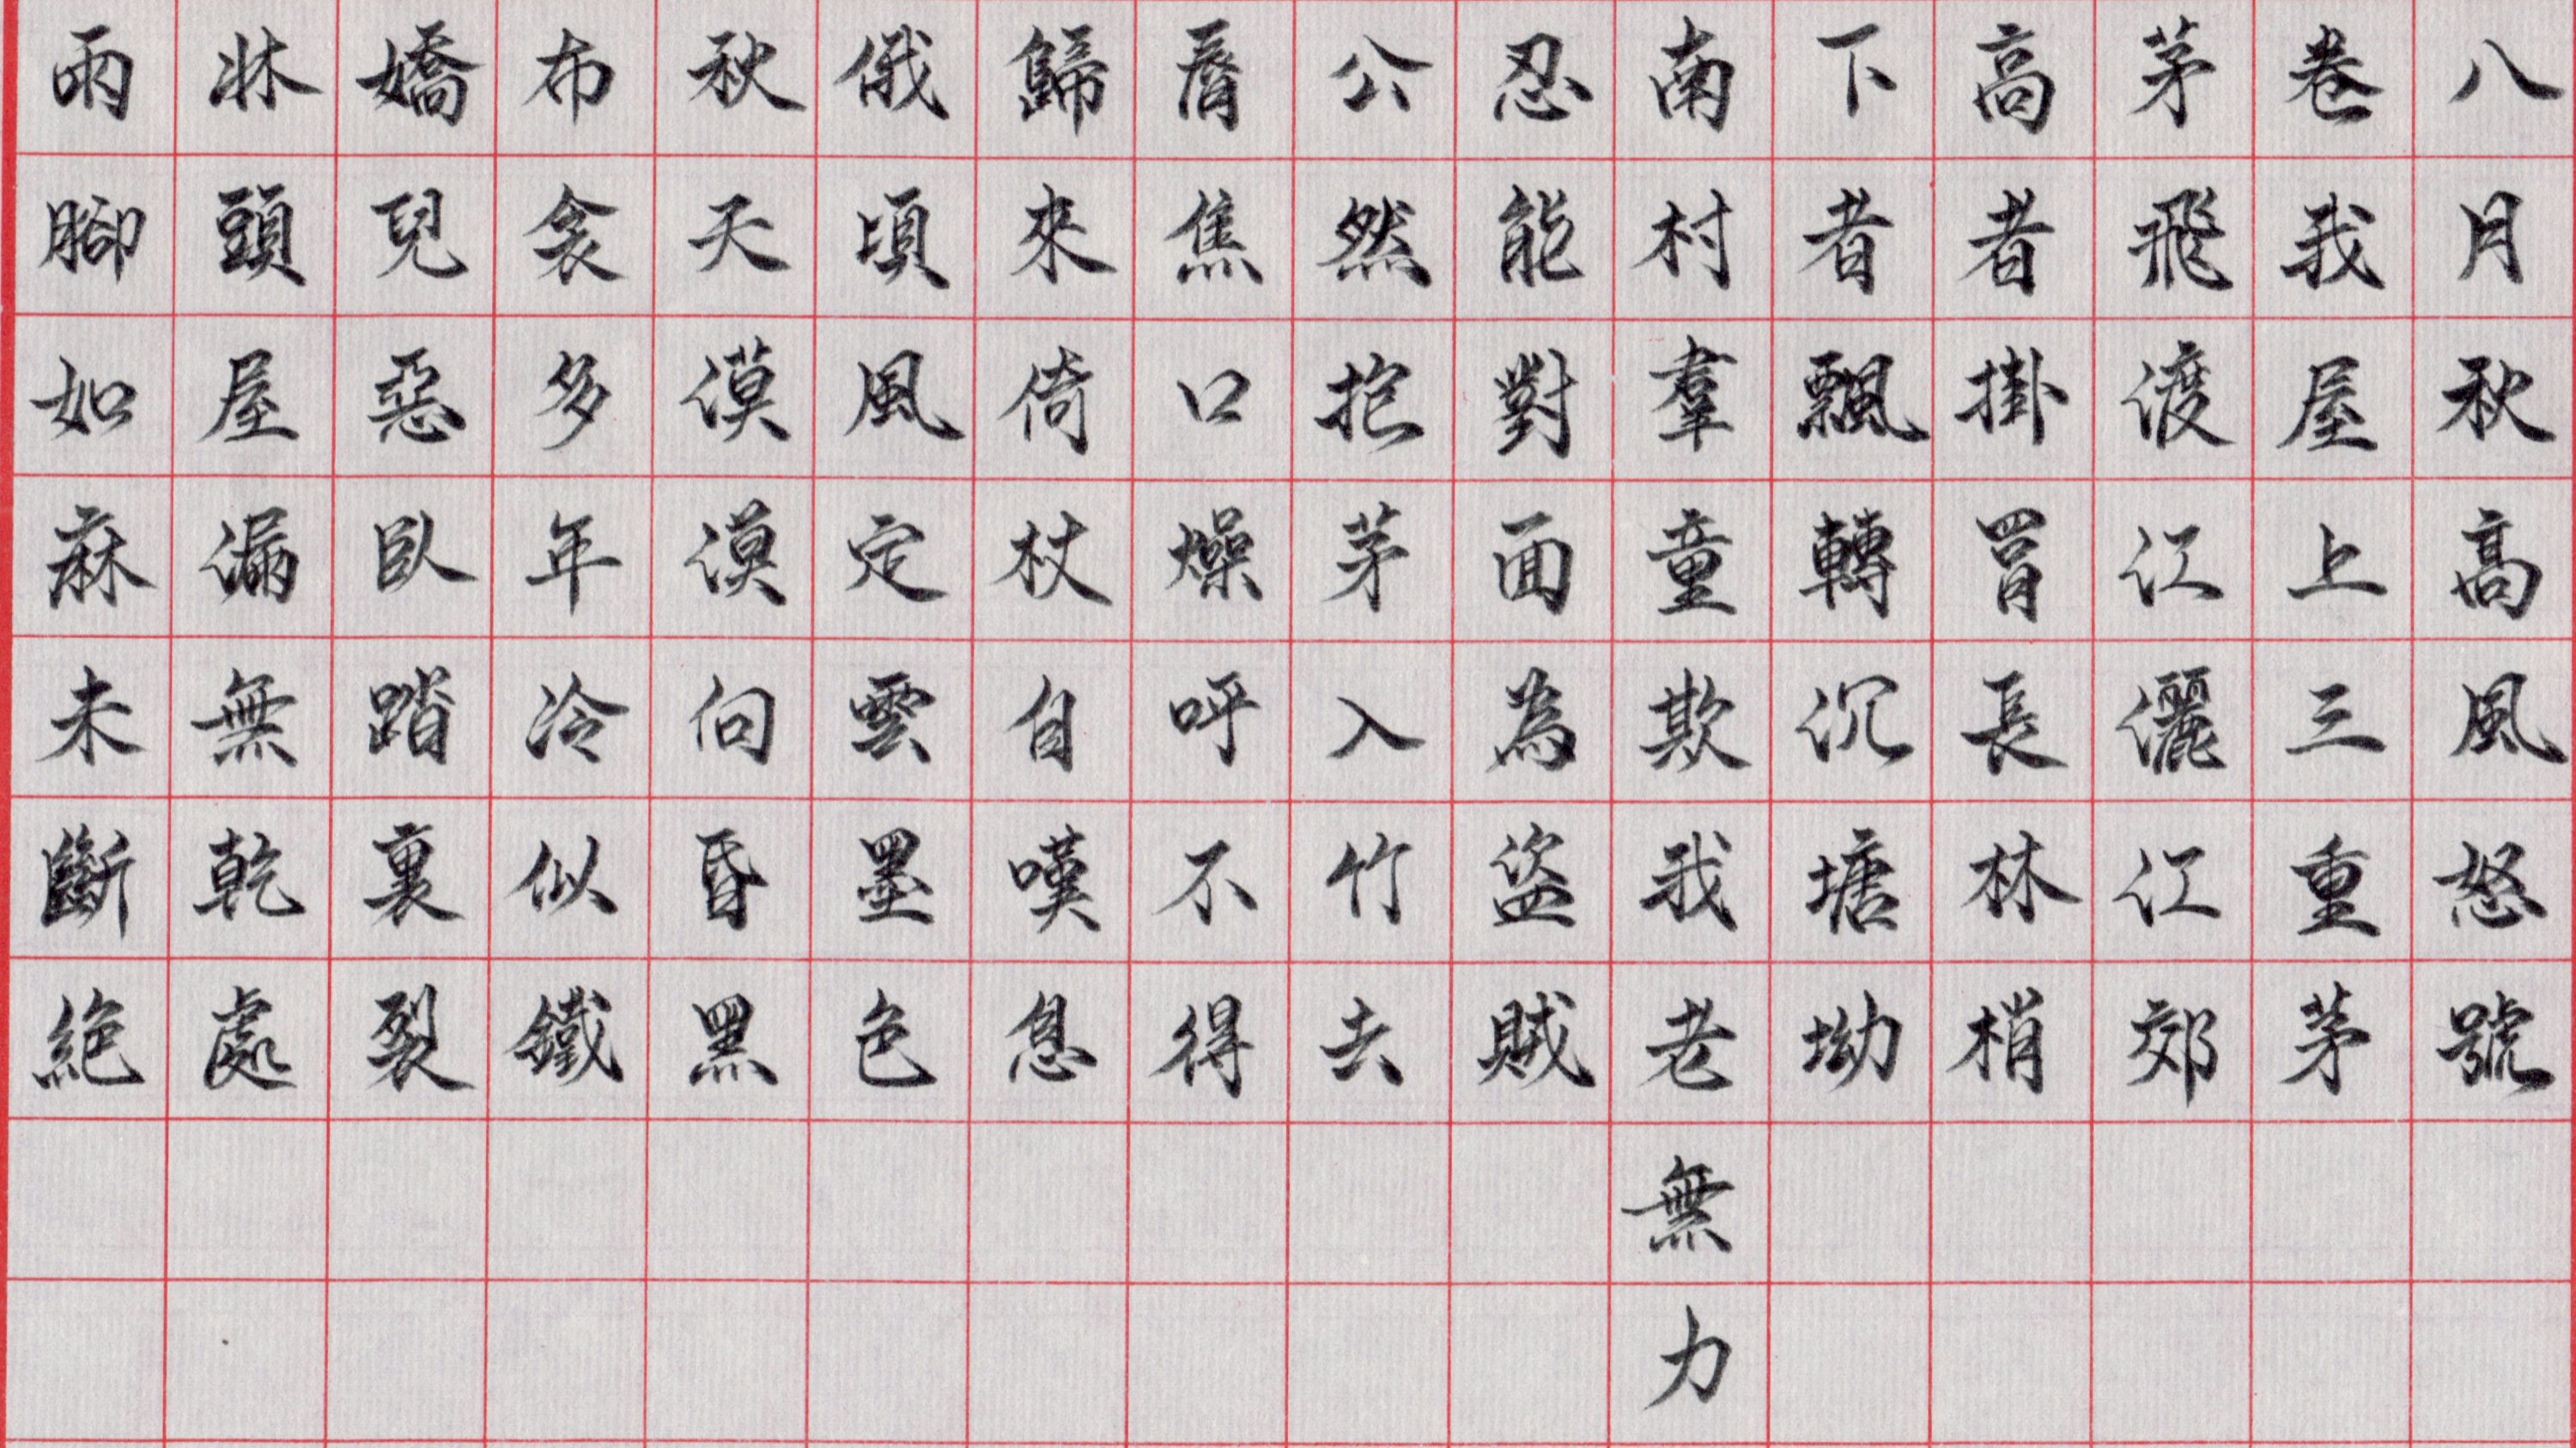 八月秋高風怒號
卷我屋上三重茅
茅飛渡江灑江郊
高者掛罥長林梢
下者飄轉沉塘坳
南村羣童欺我老無力
忍能對面為盜賊
公然抱茅入竹去
脣焦口燥呼不得
歸來倚杖自嘆息
俄頃風定雲墨色
秋天漠漠向昏黑
布衾多年冷似鐵
嬌兒惡臥踏裏裂
牀頭屋漏無乾處
雨腳如麻未斷絕